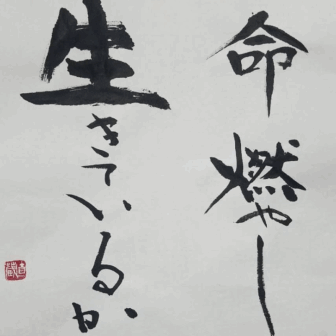 命燃やし
生きているか